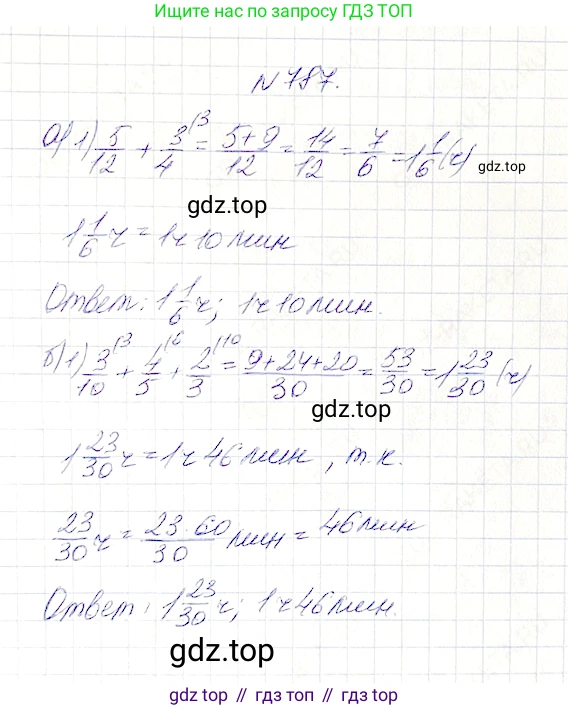 Ищите нас по запросу ГДЗ ТОП
N 787.
а) 1) 5/12 + 3/4 (3 = (5+9)/12 = 14/12 = 7/6 = 1 1/6 (ч)
gdz.top
gdz.top
1 1/6 ч = 1ч 10 мин
Ответ: 1 1/6 ч; 1ч 10 мин.
б) 1) 3/10 (3 + 4/5 (6 + 2/3 (10 = (9+24+20)/30 = 53/30 = 1 23/30 (ч)
gdz.top
1 23/30 ч = 1ч 46 мин, т.к.
23/30 ч = (23·60)/30 мин = 46 мин
Ответ: 1 23/30 ч; 1ч 46 мин.
gdz.top
gdz.top // гдз топ // гдз.топ